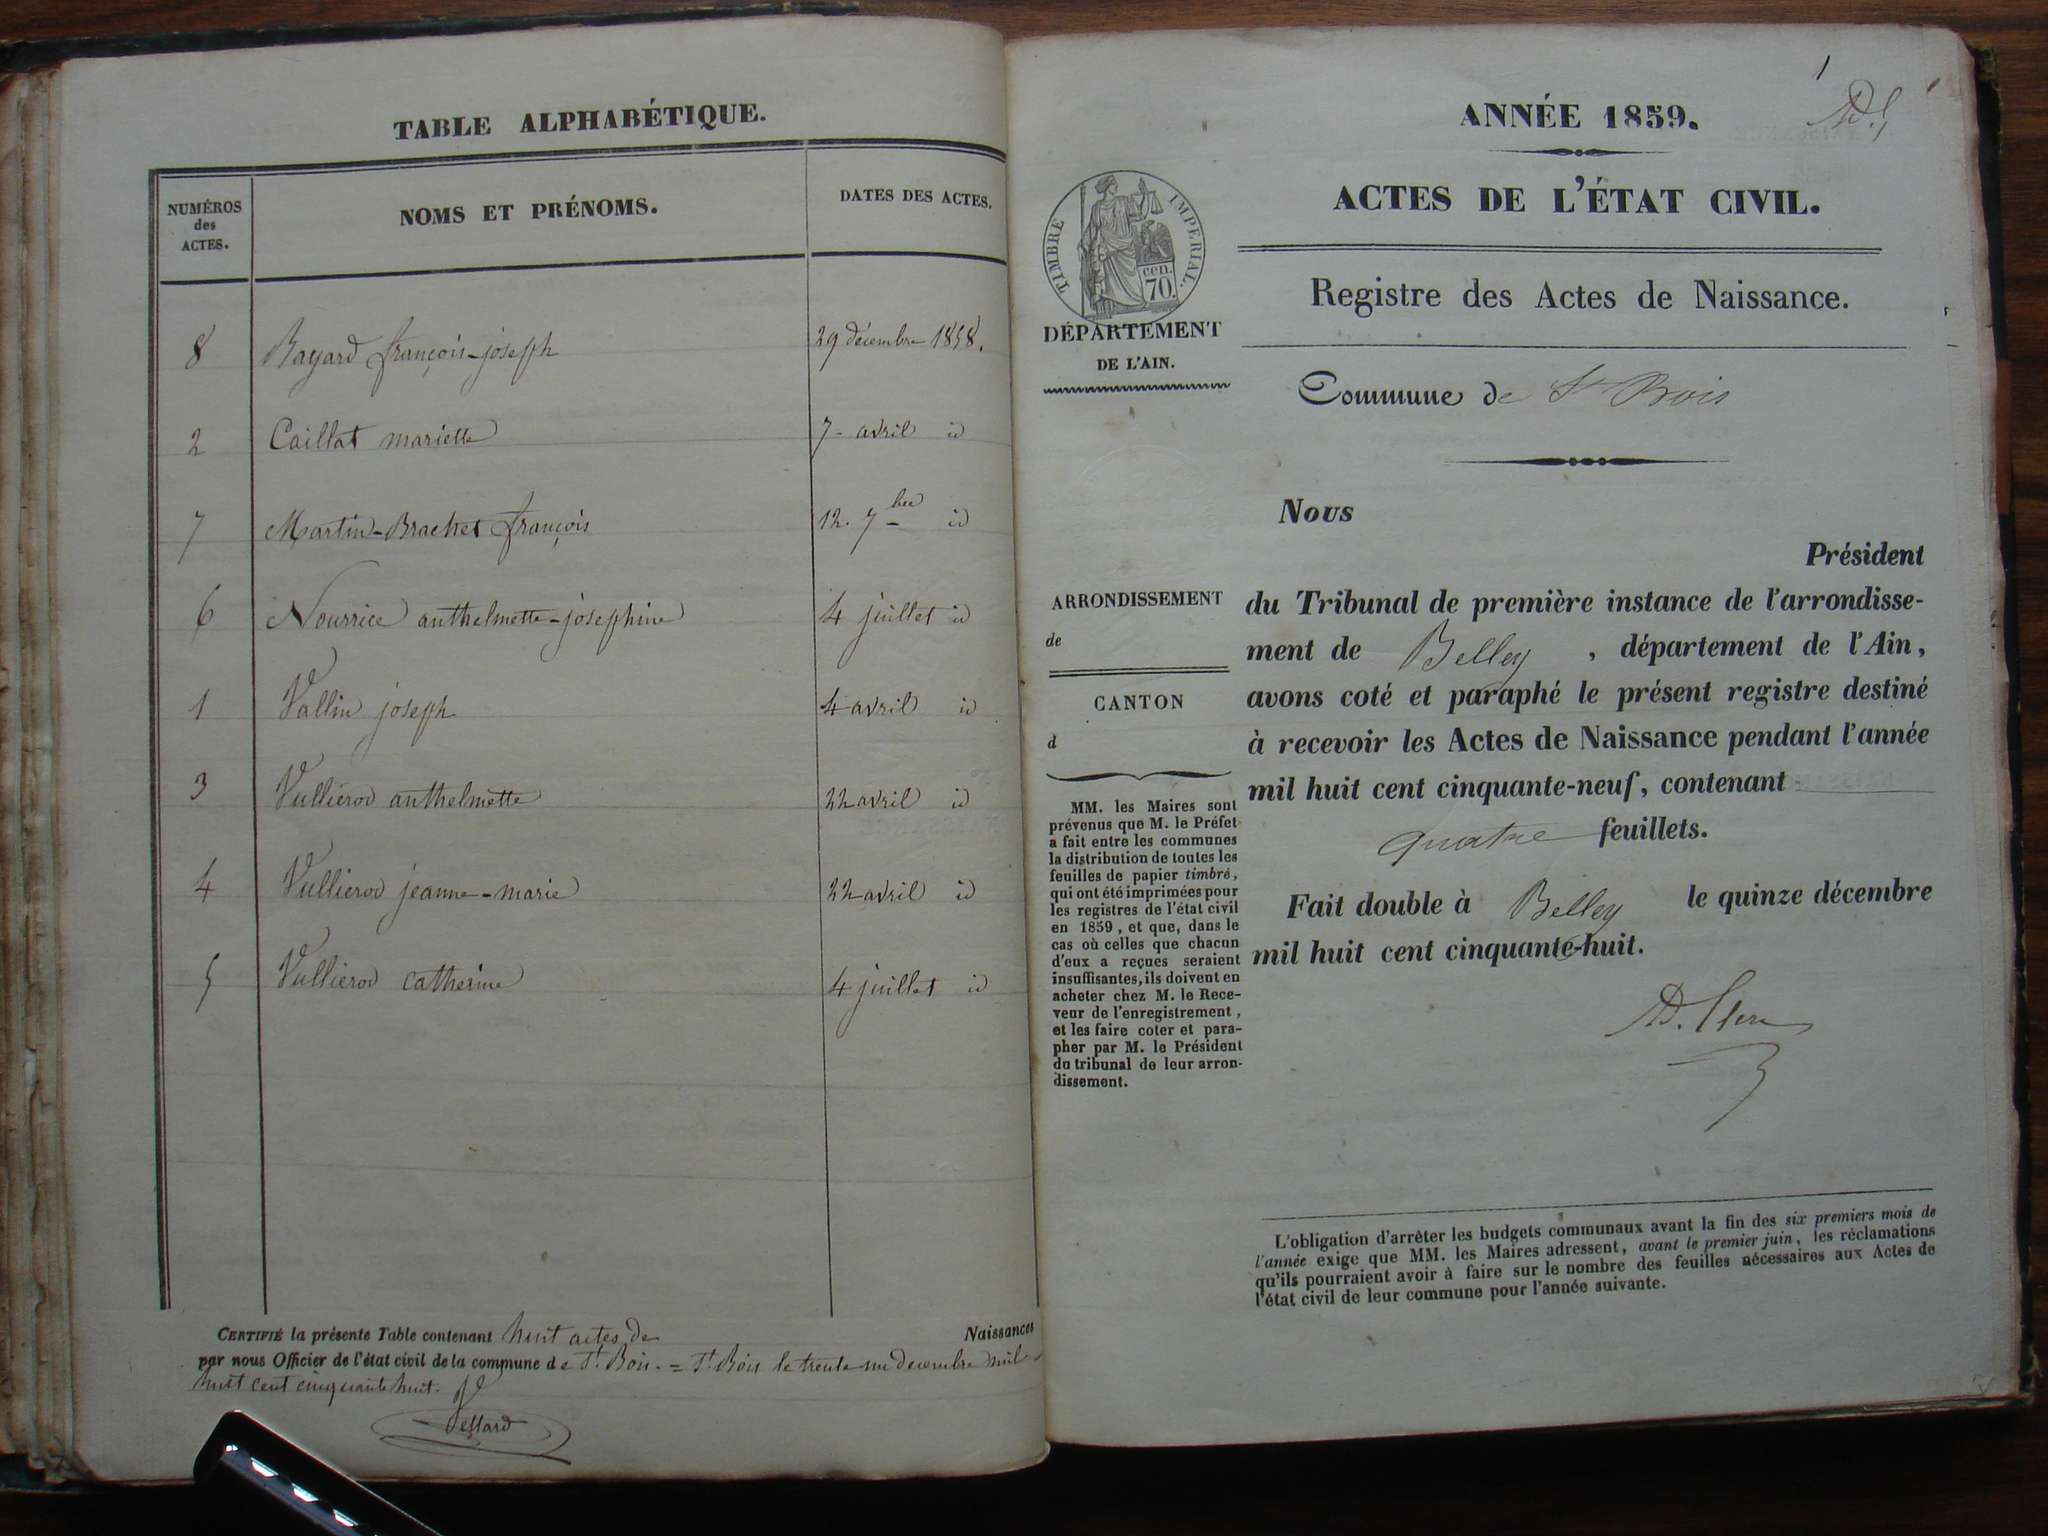 TABLE ALPHABÉTIQUE.
NUMÉROS
des
ACTES.
NOMS ET PRÉNOMS.
DATES DES ACTES.
8 Bayard françois-joseph 29 décembre 1858.
2 Caillat mariette 7 avril id
7 Martin-Brachet françois 12. 7bre id
6 Nourrice anthelmette-joséphine 4 juillet id
1 Vallin joseph 4 avril id
3 Vullierod anthelmette 22 avril id
4 Vullierod jeanne-marie 22 avril id
5 Vullierod catherine 4 juillet id
CERTIFIÉ la présente Table contenant huit actes de Naissances
par nous Officier de l'état civil de la commune de St Bois. = St Bois le trente un décembre mil
huit cent cinquante huit.
1
ANNÉE 1859.
ACTES DE L'ÉTAT CIVIL.
TIMBRE IMPERIAL.
cen.
70.
Registre des Actes de Naissance.
DÉPARTEMENT
DE L'AIN.
Commune de St Bois
Nous
Président
du Tribunal de première instance de l'arrondisse-
ment de Belley , département de l'Ain,
avons coté et paraphé le présent registre destiné
à recevoir les Actes de Naissance pendant l'année
mil huit cent cinquante-neuf, contenant
quatre feuillets.
Fait double à Belley le quinze décembre
mil huit cent cinquante-huit.
ARRONDISSEMENT
de
CANTON
d
MM. les Maires sont
prévenus que M. le Préfet
a fait entre les communes
la distribution de toutes les
feuilles de papier timbré,
qui ont été imprimées pour
les registres de l'état civil
en 1859, et que, dans le
cas où celles que chacun
d'eux a reçues seraient
insuffisantes, ils doivent en
acheter chez M. le Rece-
veur de l'enregistrement,
et les faire coter et para-
pher par M. le Président
du tribunal de leur arron-
dissement.
L'obligation d'arrêter les budgets communaux avant la fin des six premiers mois de
l'année exige que MM. les Maires adressent, avant le premier juin, les réclamations
qu'ils pourraient avoir à faire sur le nombre des feuilles nécessaires aux Actes de
l'état civil de leur commune pour l'année suivante.